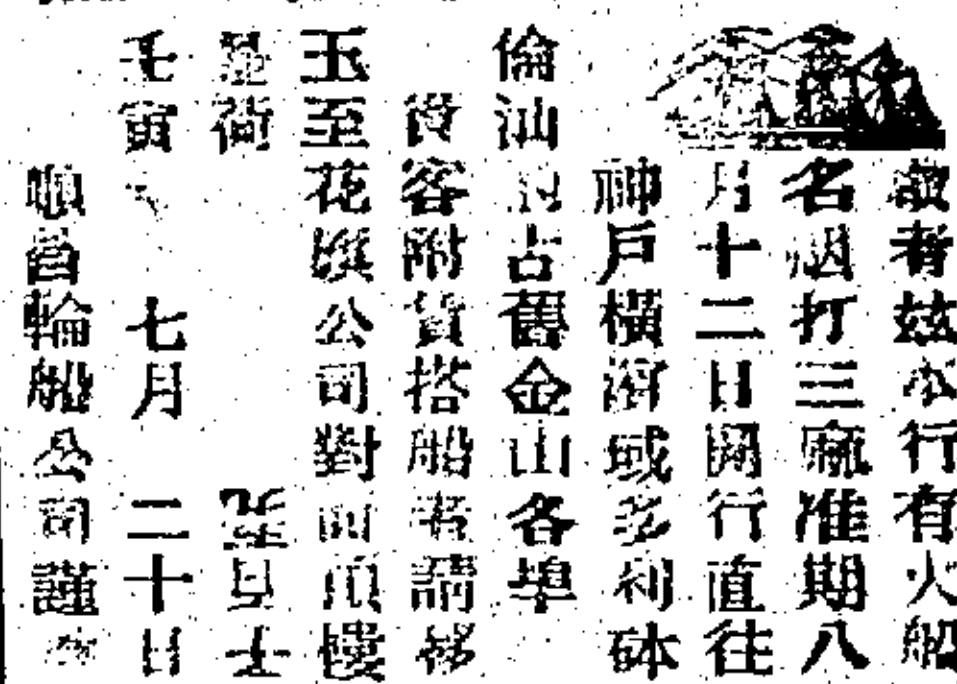 敬者茲本行有火船
名烟打三麻准期八
月十二日開行直往
神戶橫濱域多利砵
倫汕 古舊金山各埠
客附貨搭船者請移
玉至花旗公司對面頂樓
是荷 
壬寅 七月 二十日
輪船公司謹